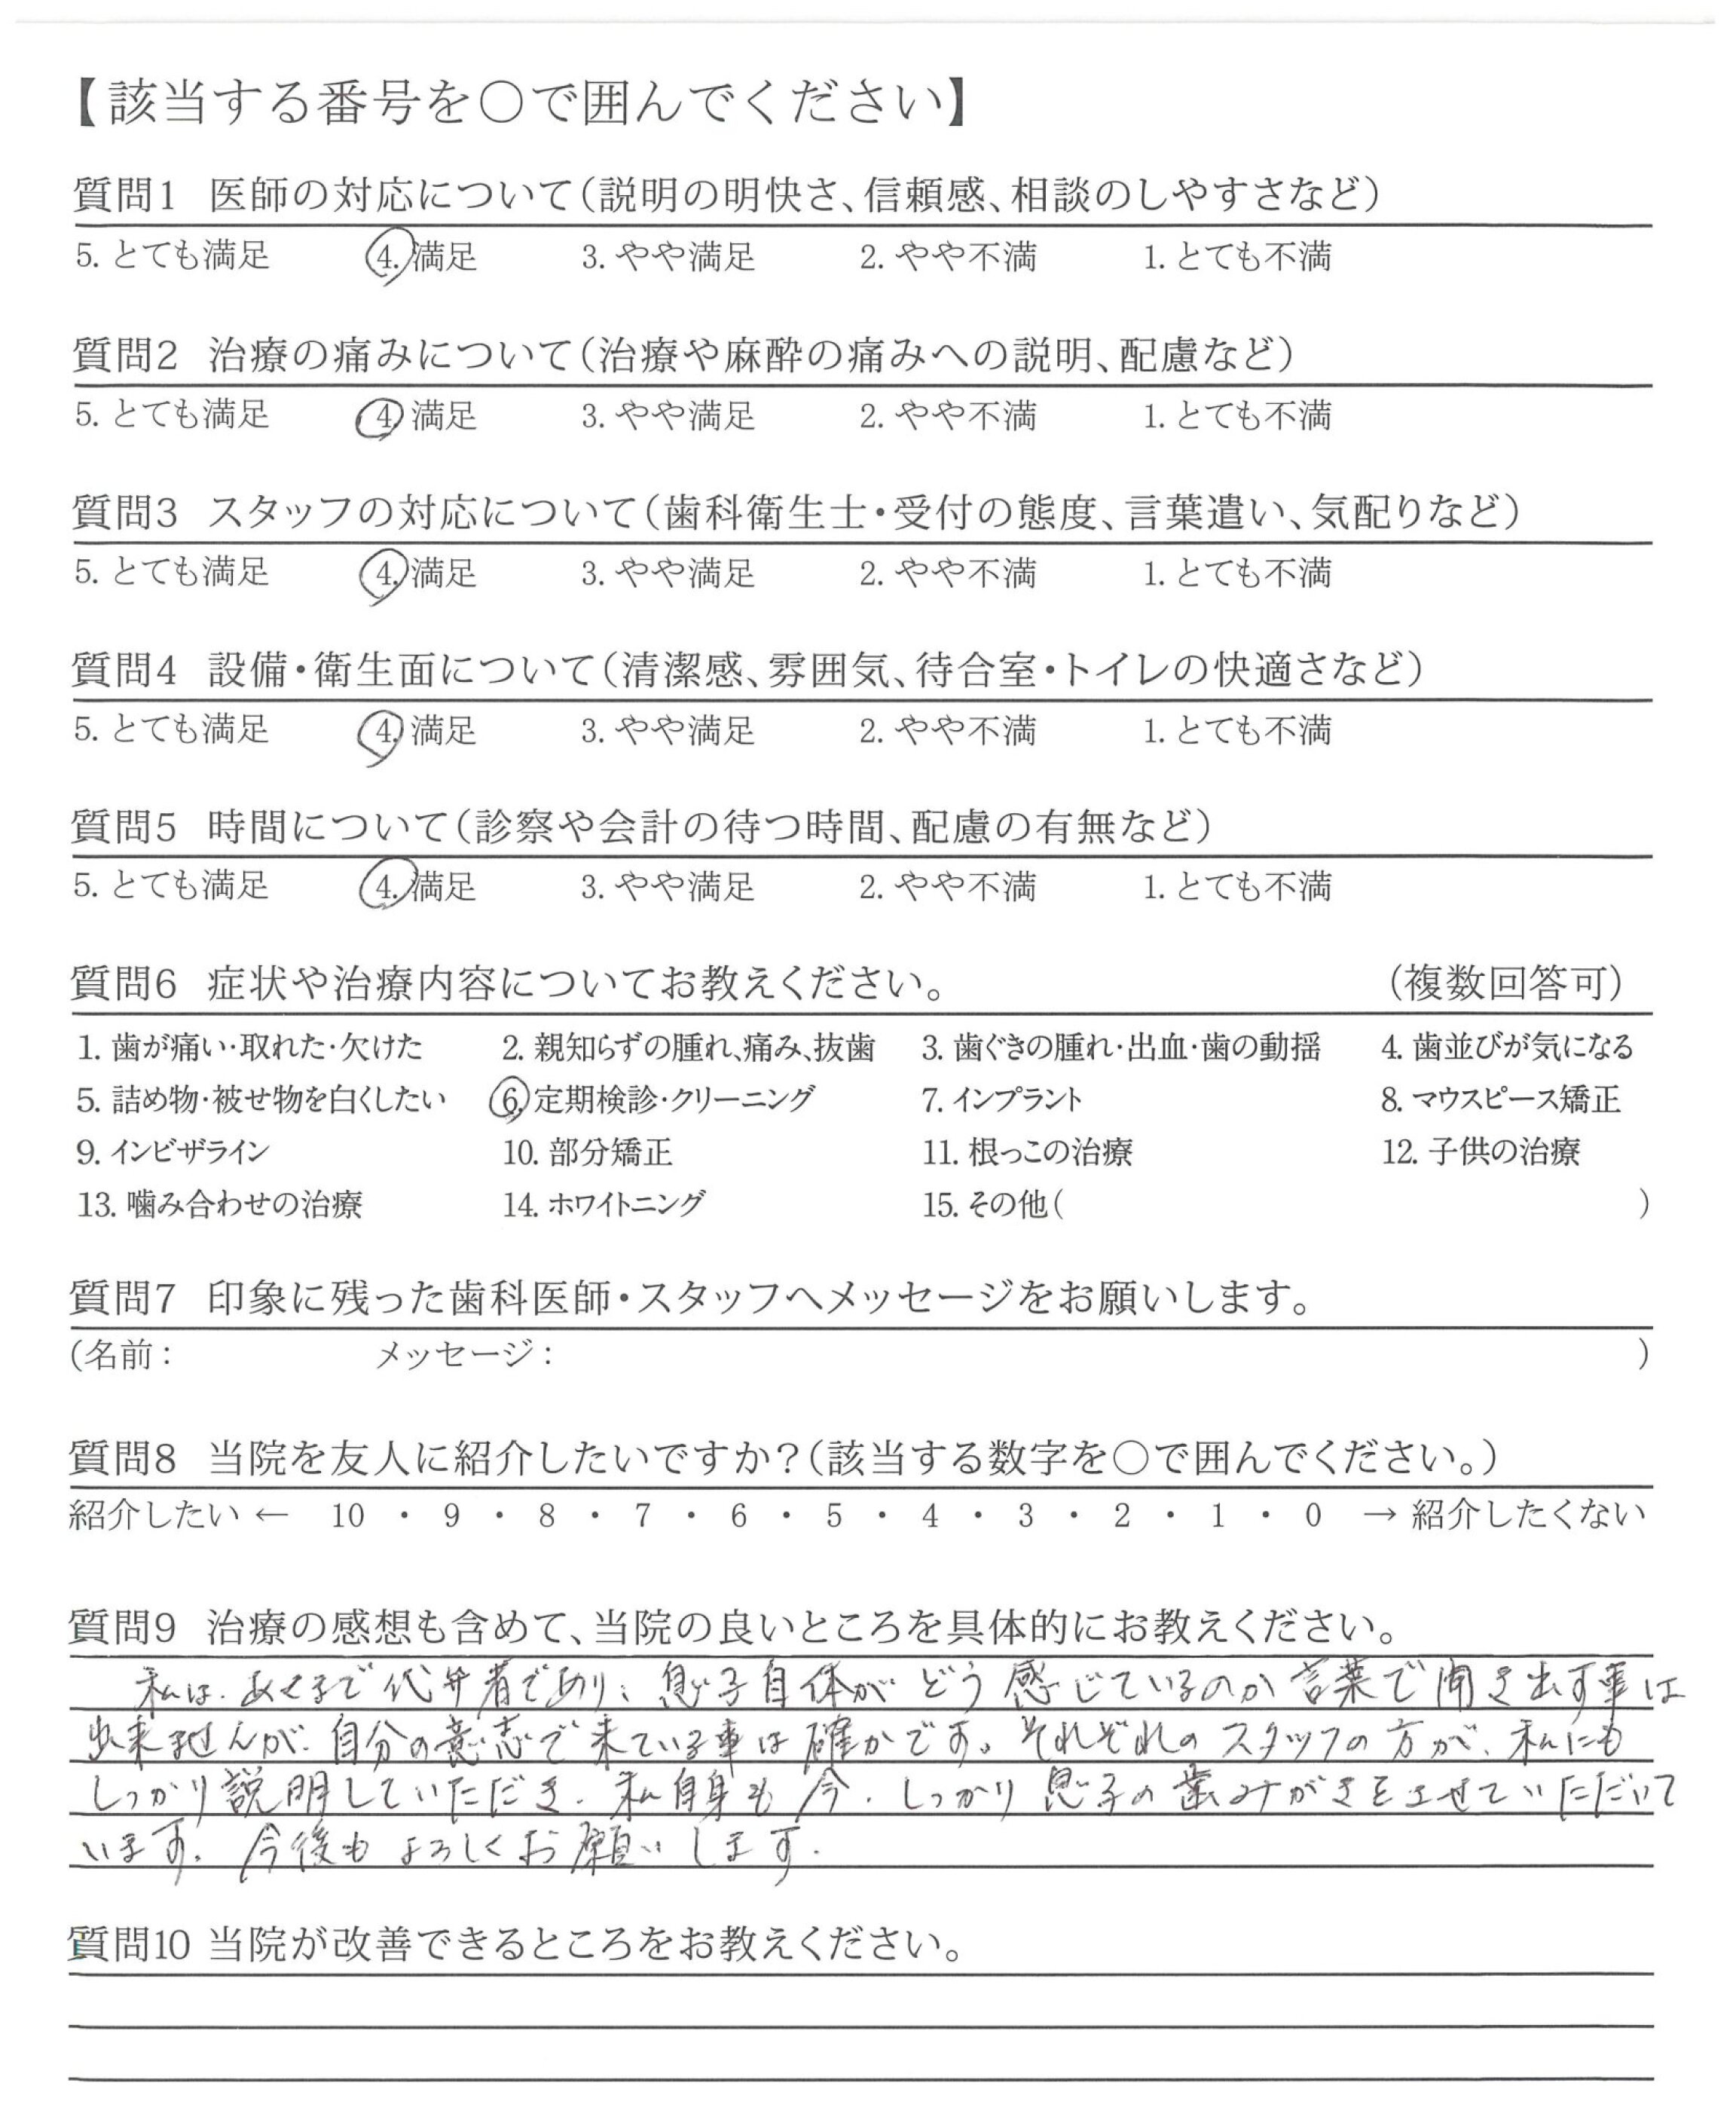 【該当する番号を〇で囲んでください】
質問1 医師の対応について(説明の明快さ、信頼感、相談のしやすさなど)
5. とても満足 4. 満足 3. やや満足 2. やや不満 1. とても不満
質問2 治療の痛みについて(治療や麻酔の痛みへの説明、配慮など)
5. とても満足 4. 満足 3. やや満足 2. やや不満 1. とても不満
質問3 スタッフの対応について(歯科衛生士・受付の態度、言葉遣い、気配りなど)
5. とても満足 4. 満足 3. やや満足 2. やや不満 1. とても不満
質問4 設備・衛生面について(清潔感、雰囲気、待合室・トイレの快適さなど)
5. とても満足 4. 満足 3. やや満足 2. やや不満 1. とても不満
質問5 時間について(診察や会計の待つ時間、配慮の有無など)
5. とても満足 4. 満足 3. やや満足 2. やや不満 1. とても不満
質問6 症状や治療内容についてお教えください。 (複数回答可)
1. 歯が痛い・取れた・欠けた 2. 親知らずの腫れ、痛み、抜歯 3. 歯ぐきの腫れ・出血・歯の動揺 4. 歯並びが気になる
5. 詰め物・被せ物を白くしたい 6. 定期検診・クリーニング 7. インプラント 8. マウスピース矯正
9. インビザライン 10. 部分矯正 11. 根っこの治療 12. 子供の治療
13. 噛み合わせの治療 14. ホワイトニング 15. その他( )
質問7 印象に残った歯科医師・スタッフへメッセージをお願いします。
(名前: メッセージ: )
質問8 当院を友人に紹介したいですか?(該当する数字を〇で囲んでください。)
紹介したい ← 10 ・ 9 ・ 8 ・ 7 ・ 6 ・ 5 ・ 4 ・ 3 ・ 2 ・ 1 ・ 0 → 紹介したくない
質問9 治療の感想も含めて、当院の良いところを具体的にお教えください。
私は、あくまで代弁者であり、息子自体がどう感じているのか言葉で聞き出す事は
出来ませんが、自分の意志で来ている事は確かです。それぞれのスタッフの方が、私にも
しっかり説明していただき、私自身も今、しっかり息子の歯みがきをさせていただいて
います。今後もよろしくお願いします。
質問10 当院が改善できるところをお教えください。